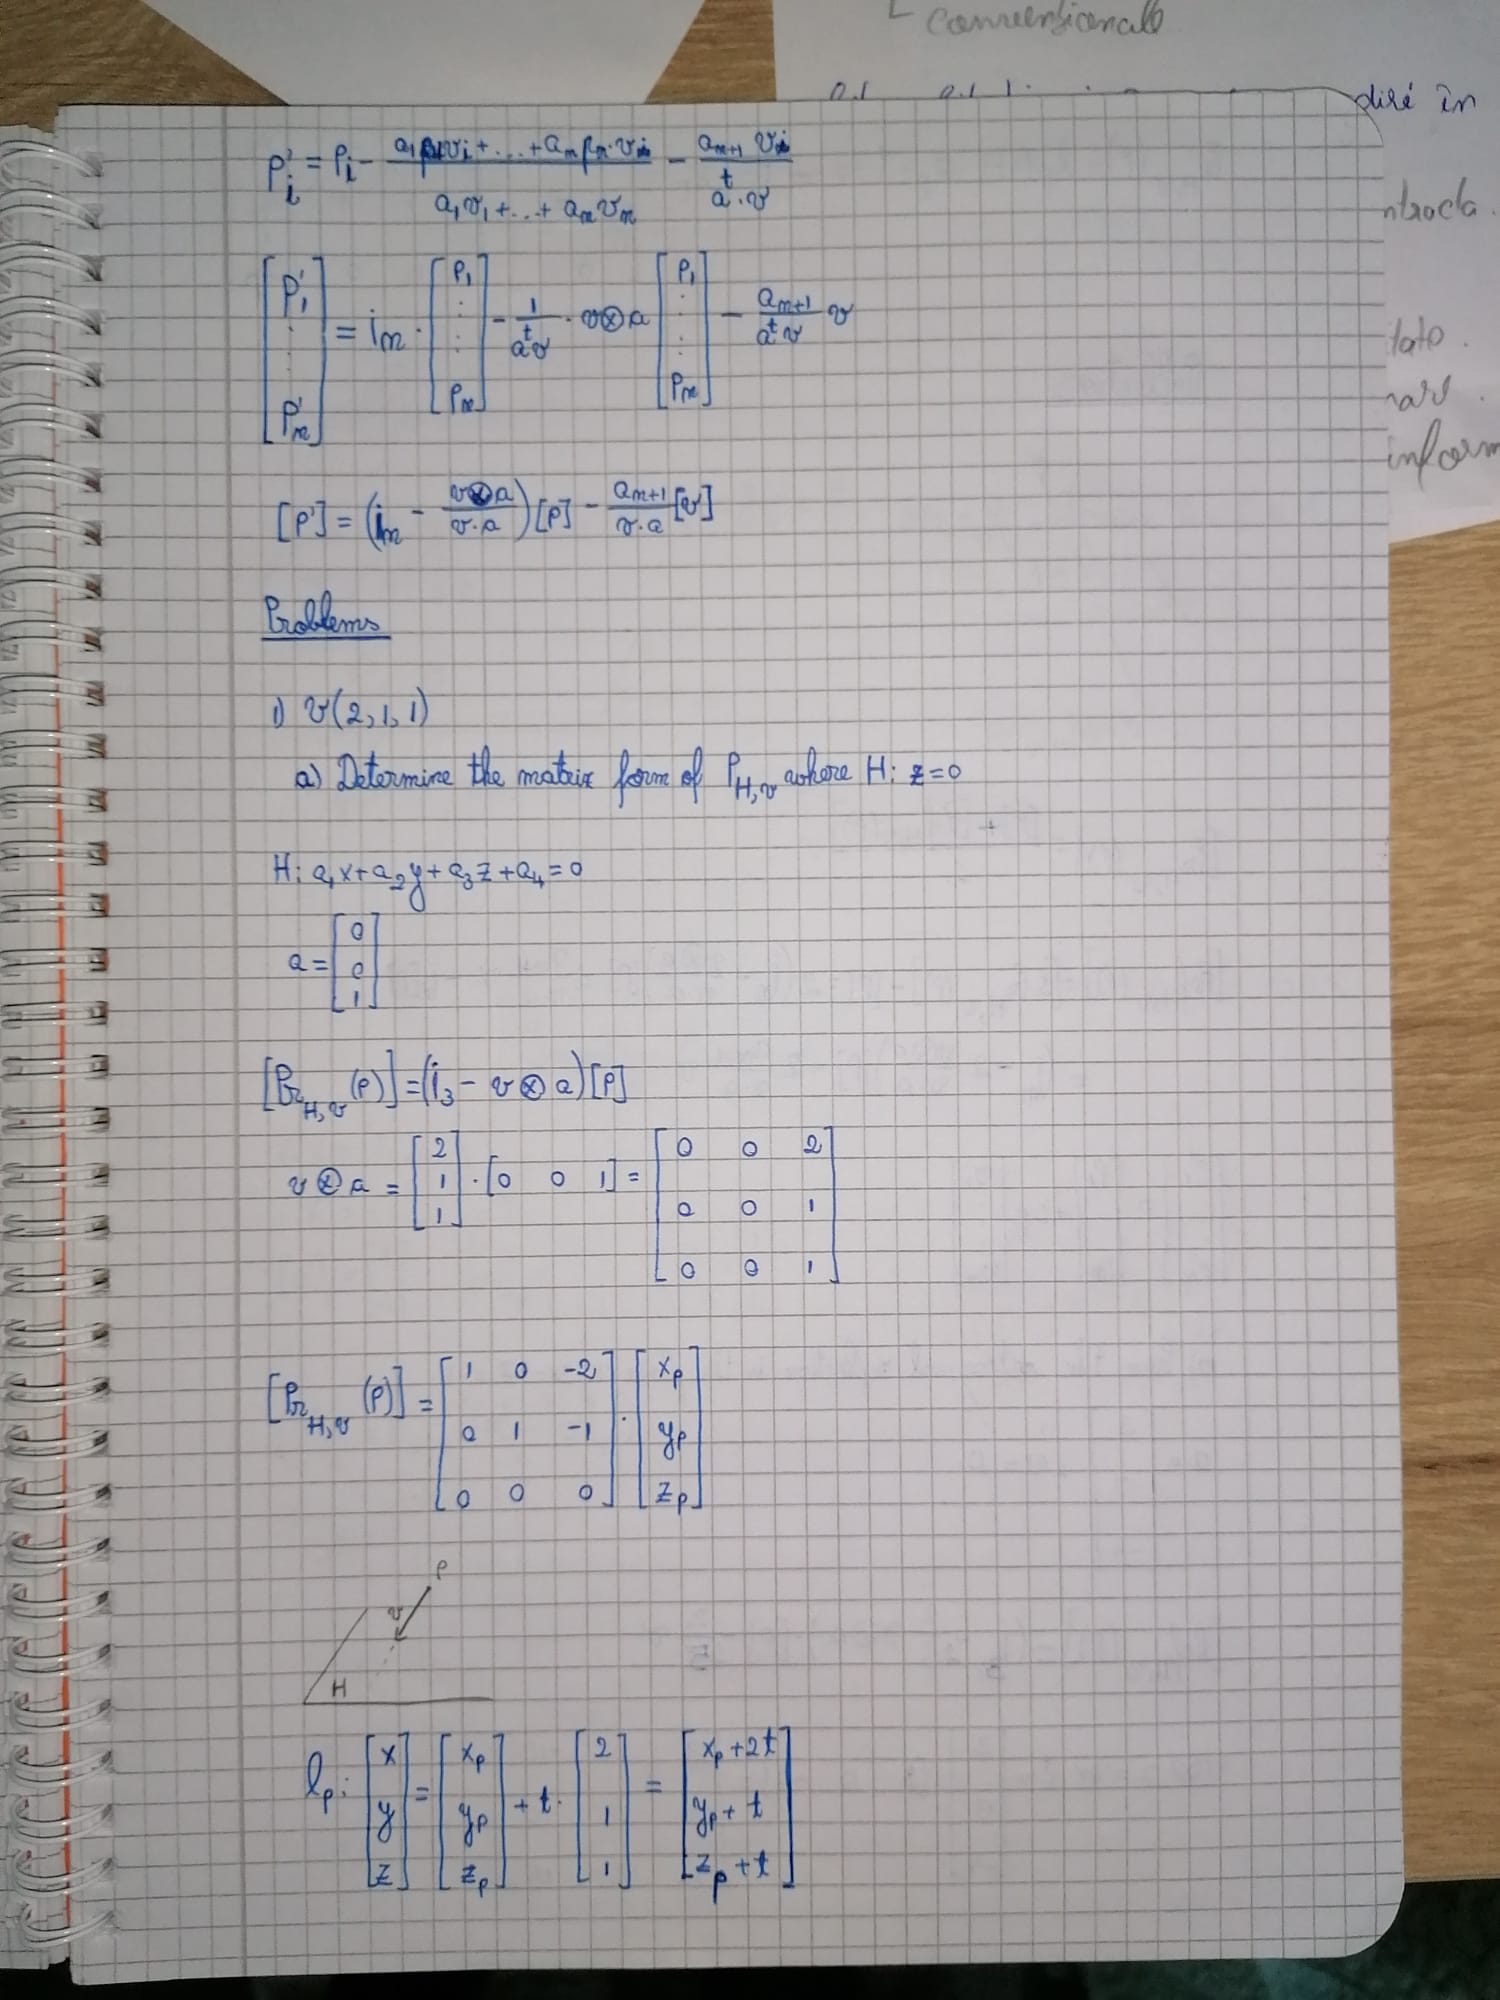 conventionall
disé în
ntrocla.
p'_i = p_i - (a_1 p_1 v_i + ... + a_n p_n · v_i)/(a_1 v_1 + ... + a_n v_n) - (a_{n+1} v_i)/(a^t · v)
lato.
[p'_1 ⋮ p'_n] = i_n · [p_1 ⋮ p_n] - 1/(a^t v) · v⊗a [p_1 ⋮ p_n] - a_{n+1}/(a^t v) v
inform
[p'] = (i_n - (v⊗a)/(v·a)) [p] - a_{n+1}/(v·a) [v]
Problems
1) v(2,1,1)
a) Determine the matrix form of P_{H,v} where H: z=0
H: a_1x+a_2y+a_3z+a_4=0
a = [0 0 1]
[Pr_{H,v}(p)] = (i_3 - v⊗a)[p]
v⊗a = [2 1 1] · [0 0 1] = [0 0 2; 0 0 1; 0 0 1]
[Pr_{H,v}(p)] = [1 0 -2; 0 1 -1; 0 0 0] · [x_p y_p z_p]
P
v
H
l_p: [x y z] = [x_p y_p z_p] + t · [2 1 1] = [x_p+2t y_p+t z_p+t]